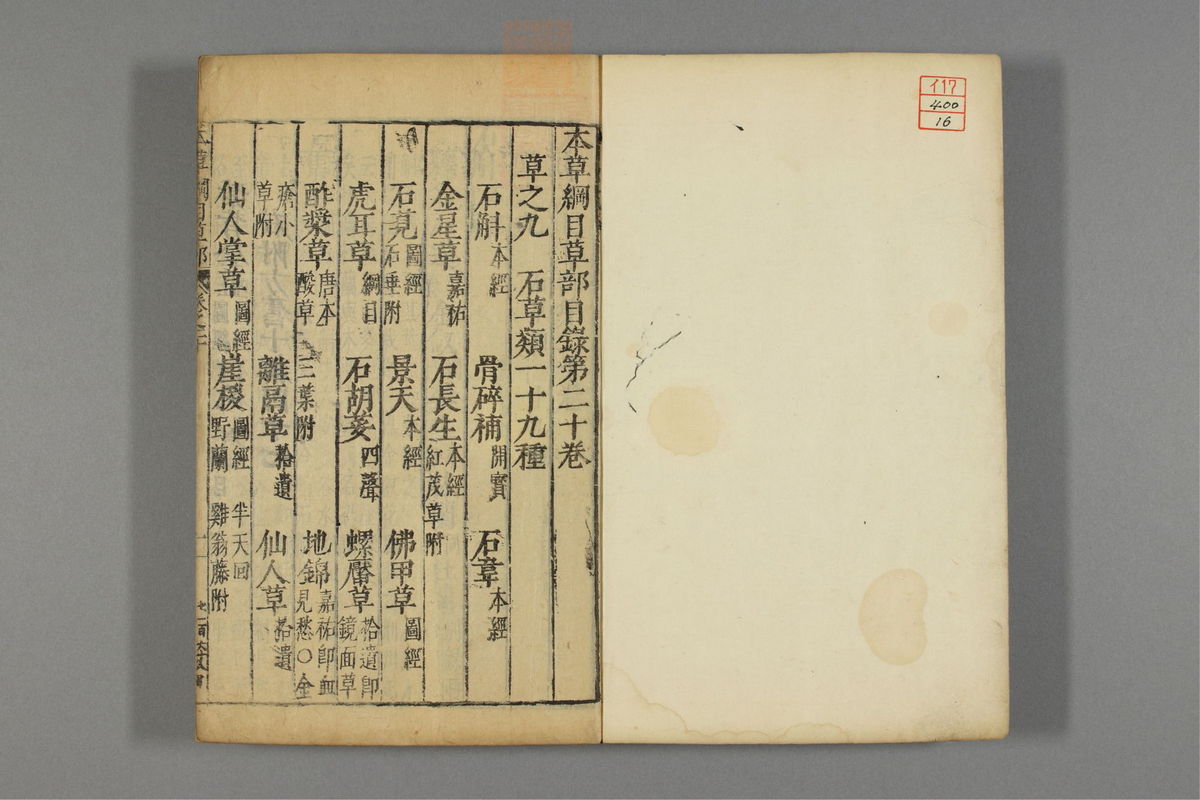 117
400
16
本草綱目草部目錄第二十卷
草之九　石草類一十九種
石斛本經　骨碎補開寶　石韋本經
金星草嘉祐　石長生本經紅茂草附
石莧圖經石垂附　景天本經　佛甲草圖經
虎耳草綱目　石胡荽四聲　螺厴草拾遺即鏡面草
酢漿草唐本酸草　三葉附　地錦嘉祐即血見愁〇金
瘡小草附　離鬲草拾遺　仙人草拾遺
仙人掌草圖經　崖椶圖經野蘭　半天回雞翁藤附